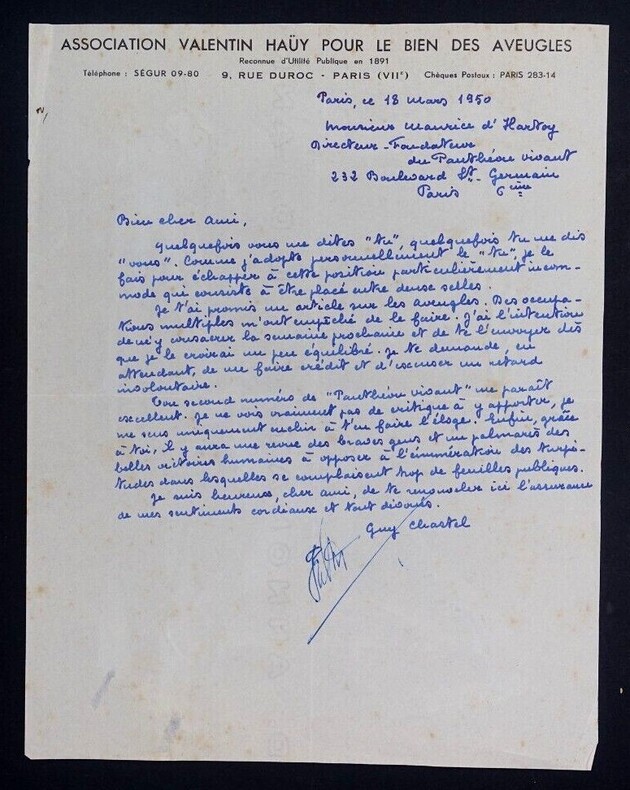 ASSOCIATION VALENTIN HAÜY POUR LE BIEN DES AVEUGLES
Reconnue d'Utilité Publique en 1891
Téléphone : SÉGUR 09-80 9, RUE DUROC - PARIS (VIIe) Chèques Postaux : PARIS 283-14
Paris, ce 18 mars 1950
Monsieur Maurice d'Hartoy
Directeur-Fondateur
du Panthéon vivant
232 Boulevard St-Germain
Paris 6ème
Bien cher ami,
Quelquefois vous me dites "tu", quelquefois tu me dis
"vous". Comme j'adopte personnellement le "tu", je le
fais pour échapper à cette position particulièrement incom-
mode qui consiste à être placé entre deux selles.
Je t'ai promis un article sur les aveugles. Des occupa-
tions multiples m'ont empêché de le faire. J'ai l'intention
de m'y consacrer la semaine prochaine et de te l'envoyer dès
que je le croirai un peu équilibré. Je te demande, en
attendant, de me faire crédit et d'excuser un retard
involontaire.
Ton second numéro de "Panthéon vivant" me paraît
excellent. Je ne vois vraiment pas de critique à y apporter, je
me sens uniquement enclin à t'en faire l'éloge. Enfin, grâce
à toi, il y aura une revue des braves gens et un palmarès des
belles victoires humaines à opposer à l'énumération des turpi-
tudes dans lesquelles se complaisent trop de feuilles publiques.
Je suis heureux, cher ami, de te renouveler ici l'assurance
de mes sentiments cordiaux et tout dévoués.
Guy Chastel